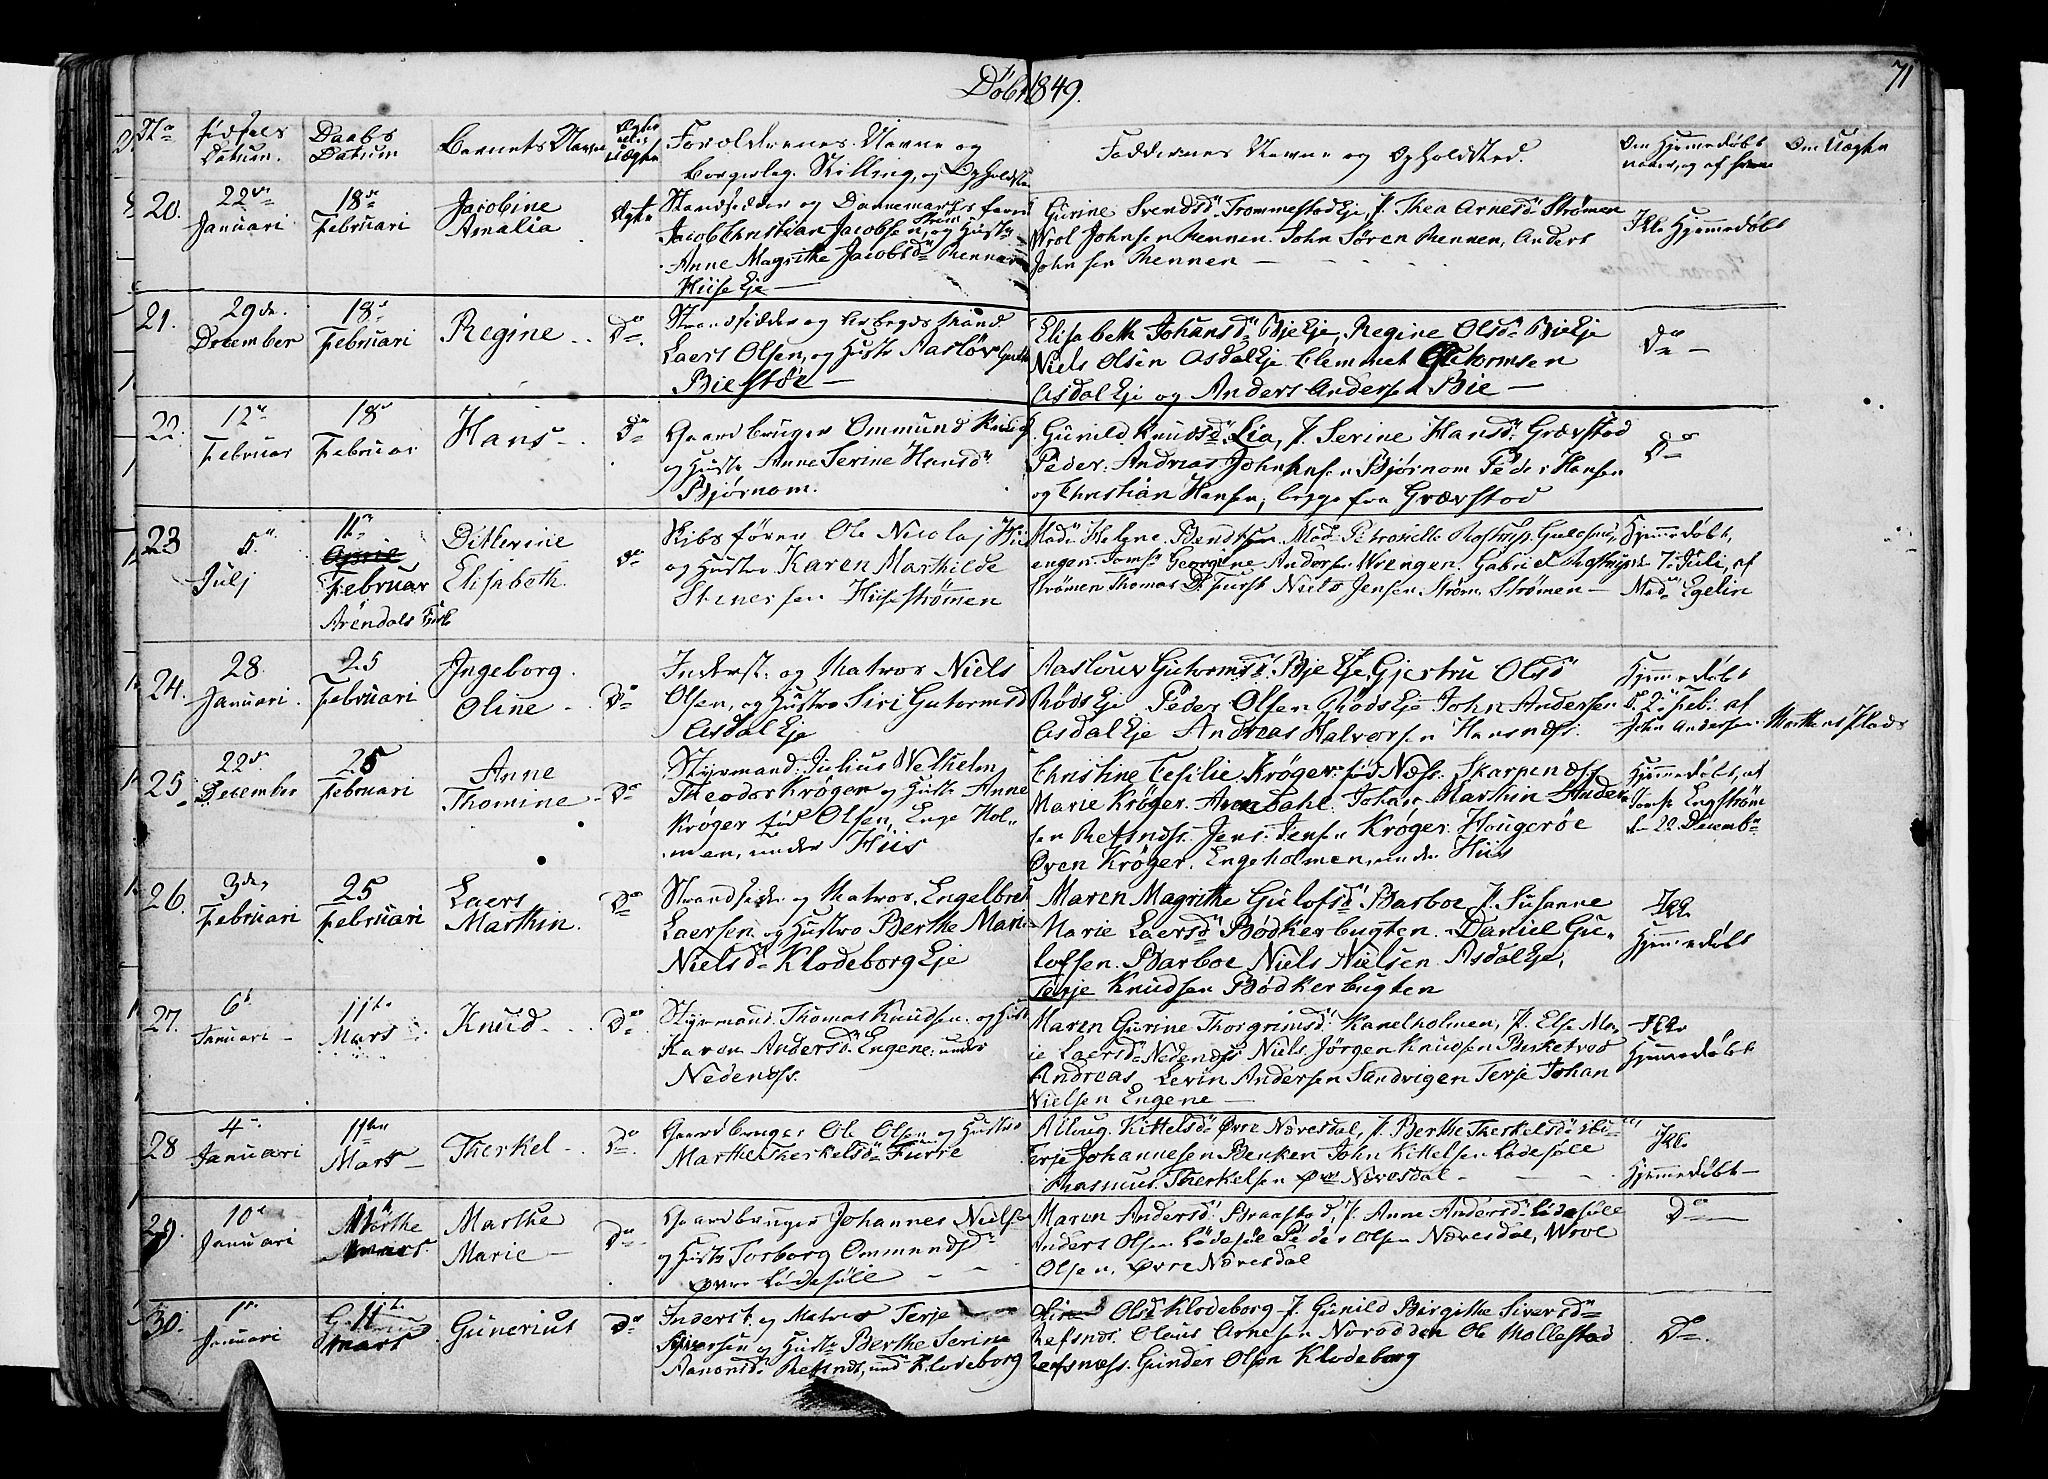 Døbt 1849.
71
No
Fødsels Datum.
Daabs Datum
Barnets Navn
Ægte eller Uægte
Forældrenes Navne og
borgerlig Stilling, og Opholdsted
Faddernes Navne og Opholdsted.
Om Hjemmedøbt
naar, og af hvem
Om Uægte
20.
22de Januari
18de Februari
Jacobine
Amalia
Ægte
Strandsidder og
Jacob Christian Jacobsen, og Hustr
Anne Magrithe Jacobsdr
Hiise Eje
Gurine Svendsdr Trommestad Eje, J. Thea Arnesdr Strømen
Wrol Johnsen Rennen. John Sören Rennen, Anders
Johnsen Rennen
Ikke Hjemmedøbt
21.
29de December
18de Februari
Regine
Do
Strandsidder og Arbejdsmand
Laers Olsen, og Hustr Aasløv
Biestøe
Elisabeth Johansdr Bje Eje, Regine Olsdr Bie Eje
Niels Olsen Asdal Eje Clemmet Gutormsen
Asdal Eje og Anders Andersen Bie
Do
22.
12te Februar
18de Februar
Hans
Do
Gaardbruger Ommund
og Hustr Anne Serine Hansdr
Bjørnom.
Gunild Knudsdr Lia, J. Serine Hansdr Grævstad
Peder Andreas Johnsen Bjørnom Peder Hansen
og Christian Hansen, begge fra Grævstad
Do
23
5te Julj
11te
Februar
Arendals Kirke
Ditlevine
Elisabeth
do
Skibsfører Ole Nicolaj
og Hustro Karen Marthilde
Stenersen Hiisestrømen
Mad. Helene Bendtsen Mad. Petronille
Jomfr Georgine Andersen Wrengen. Gabriel
Strømen Thomas Dr. Furst Niels Jensen Strøm. Strømen
Hjemmedøbt,
7 Juli, af
Madm Egelin
24.
28. Januari
25 Februari
Ingeborg
Oline
Do
Inderst. og Matros Niels
Olsen, og Hustro Siri Gutormsd
Asdal Eje
Aaslouv Gutormsdr Bje Eje, Gjertru Olsdr
Røds Eje Peder Olsen Røds Eje John Andersen
Asdal Eje Andreas Halvorsen Hansnæss.
Hjemmedøbt
d. 2 Feb. af
John Andersen
25.
22de December
25 Februari
Anne
Thomine
Do
Styrmand Julius Welhelm
Theodor Krøger og Hustr Anne
Krøger født Olsen, Enge Hol-
men, under Hiis
Christine Cesilie Krøger fød Næss. Skarpenæss
Marie Krøger Arendahl. Johan Marthin Ander
sen Refsnæss. Jens Jensen Krøger. Hougerøe
Oven Krøger. Engeholmen, under Hiis
Hjemmedøbt, af
Jomfr Engstrøm
den 22 Decembr
26.
3de Februari
25 Februari
Laers
Marthin.
Do
Strandsidr og Matros, Engelbret
Laersen og Hustro Berthe Marie
Nielsdr Klodeborg Eje
Maren Magrithe Gulofsdr Barboe J. Susanne
Marie Laersdr Bødkerbugten. Daniel Gu-
lofsen. Barboe Niels Nielsen Asdal Eje,
Terje Knudsen Bødkerbugten
Ikke
Hjemmedøbt
27.
6te Januari
11te Mars
Knud
Do
Styrmand Thomas Knudsen og Hustr
Karen Andersdr Engene under
Nedenæss.
Maren Gurine Thorgrimsdr Kanelholmen, J. Else Ma-
rie Laersdr Nedenæss Niels Jörgen Knudsen
Andreas Levin Andersen Sandvigen Terje Johan
Nielsen Engene
Ikke
Hjemmedøbt
28
4de Januari
11te Mars
Therkel
Do
Gaardbruger Ole Olsen og Hustro
Marthe Therkelsdr Furre
Asloug Kittelsdr Øvre Næresdal, J. Berthe Therkelsdr
Terje Johannesen Benken John Kittelsen Lødesøle
Rasmus Therkelsen Øvre Næresdal
Ikke
Hjemmedøbt
29.
10de Januari
11te
Mars.
Marthe
Marie
Do
Gaardbruger Johannes Nielsen
og Hustr Torborg Ommundsdr
øvre Lødesøle
Maren Andersdr Braastad, J. Anne Andersdr Lødesøle
Anders Olsen Lødesøle Peder Olsen Næresdal, Wrol
Olsen. Øvre Næresdal
Do
30.
1te Januari
11te
Mars
Gunerius
Do
Inderst. og Matros Terje
Siversen og Hustr Berthe Serine
Aanonsdr Refsnes, und Klodeborg
Olsdr Klodeborg J. Gunild Birgithe Siversdr
Refsnæs. Oleus Arnesen Norodden Ole Mollestad
Refsnæss. Gunder Olsen Klodeborg
Do.